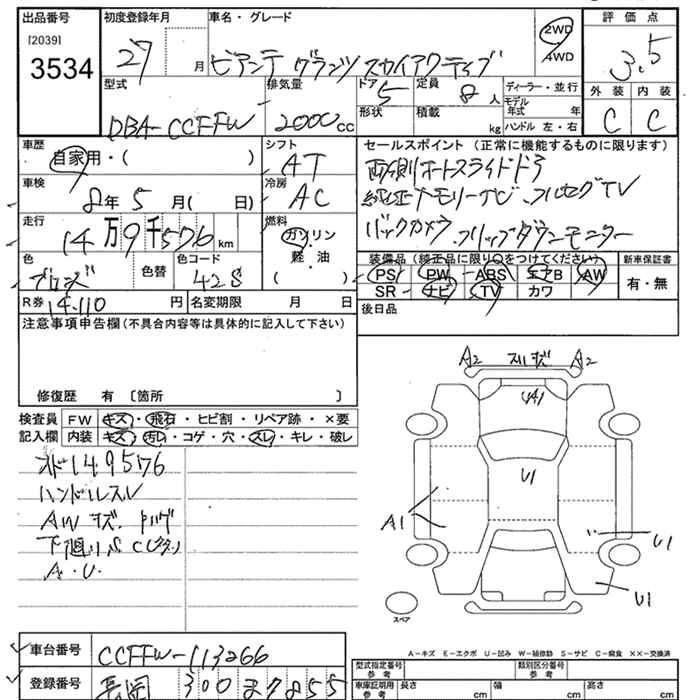 出品番号 初度登録年月 車名・グレード 評価点
[2039]
3534 27 月 ビアンテ グランツ スカイアクティブ 2WD 4WD 3.5
型式 排気量 ドア 5 定員 8 人 ディーラー・並行 外装 内装
DBA-CCFFW 2000 CC 形状 積載 kg モデル年式 年 C C
ハンドル 左・右
車歴 自家用・( ) シフト AT セールスポイント (正常に機能するものに限ります)
両側オートスライドドア
車検 8年 5月( 日) 冷房 AC 純正メモリーナビ・フルセグTV
走行 14万9千576 km 燃料 ガソリン バックカメラ フリップダウンモニター
軽・油
( )
色 ブロンズ 色替 色コード 42S 装備品 (純正品に限り○をつけてください) 新車保証書
PS PW ABS エアB AW 有・無
SR ナビ TV カワ
R券 14,110 円 名変期限 月 日 後日品
注意事項申告欄 (不具合内容等は具体的に記入して下さい)
修復歴 有 〔箇所 〕
検査員 記入欄
FW キズ・飛石・ヒビ割・リペア跡・×要
内装 キズ・汚レ・コゲ・穴・スレ・キレ・破レ
メーター149576
ハンドルスレ
AWキズ
下廻りS
A・U
A2 スリキズ A2
U1
A1
U1
U1
スペア
A-キズ E-エクボ U-凹み W-補修跡 S-サビ C-腐食 ××-交換済
車台番号 CCFFW-113266
登録番号 長岡 300 ま 7855
型式指定番号 参考 類別区分番号 参考
車庫証明用 参考 長さ cm 幅 cm 高さ cm